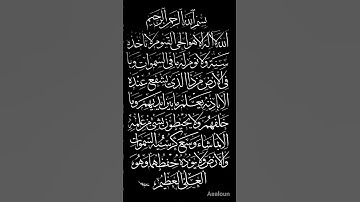 بسم الله الرحمن الرحيم
الله لا إله إلا هو الحي القيوم لا تأخذه
سنة ولا نوم له ما في السموات وما
في الأرض من ذا الذي يشفع عنده
إلا بإذنه يعلم ما بين أيديهم وما
خلفهم ولا يحيطون بشيء من علمه
إلا بما شاء وسع كرسيه السموات
والأرض ولا يئوده حفظهما وهو
العلي العظيم
Asaloun